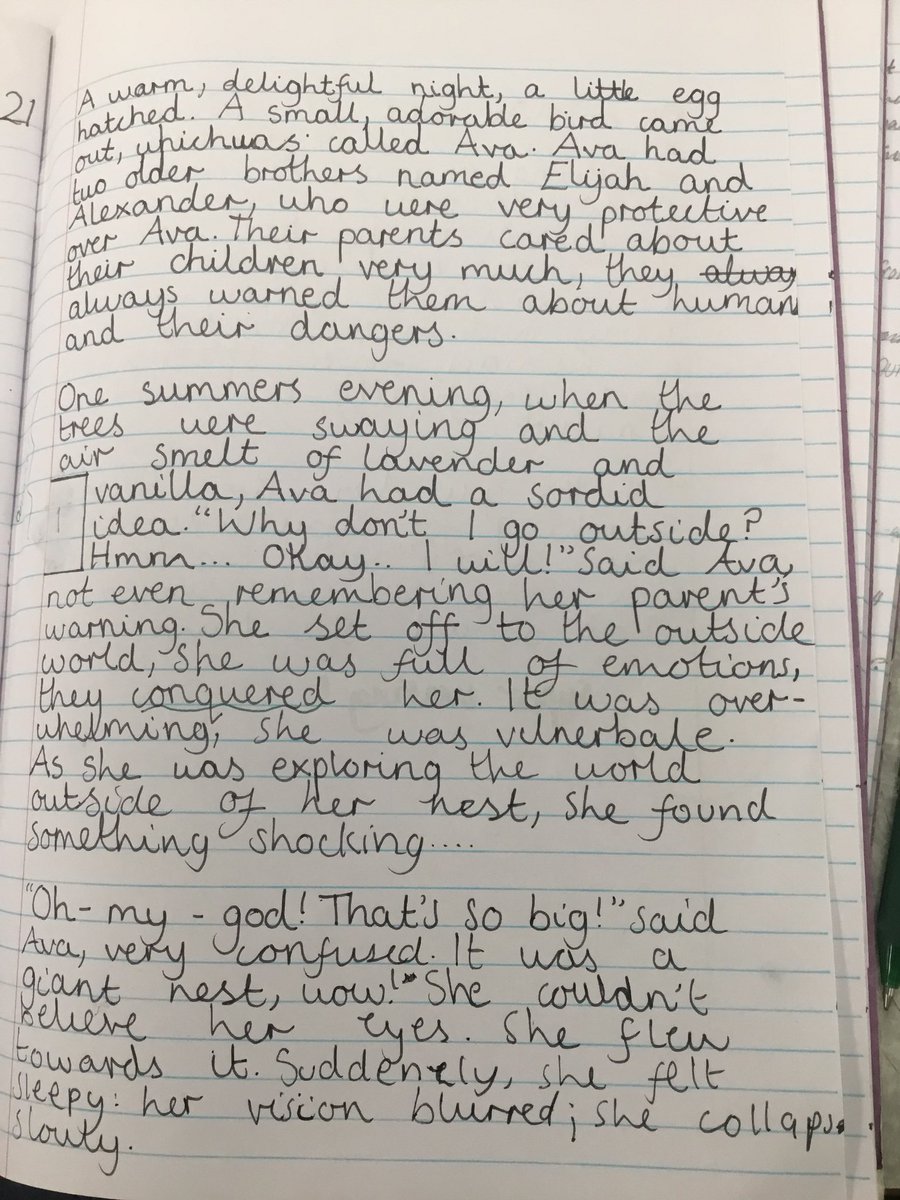 21
A warm, delightful night, a little egg
hatched. A small, adorable bird came
out, whichwas called Ava. Ava had
two older brothers named Elijah and
Alexander, who were very protective
over Ava. Their parents cared about
their children very much, they alway
always warned them about human
and their dangers.
One summers evening, when the
trees were swaying and the
air smelt of lavender and
vanilla, Ava had a sordid
idea. "Why don't I go outside?
Hmm... Okay.. I will!" Said Ava,
not even remembering her parent's
warning. She set off to the outside
world, she was full of emotions,
they conquered her. It was over-
whelming; she was vulnerbale.
As she was exploring the world
outside of her nest, she found
something shocking....
"Oh-my-god! That's so big!" said
Ava, very confused. It was a
giant nest, wow!" She couldn't
believe her eyes. She flew
towards it. Suddenely, she felt
sleepy: her vision blurred; she collaps
slowly.